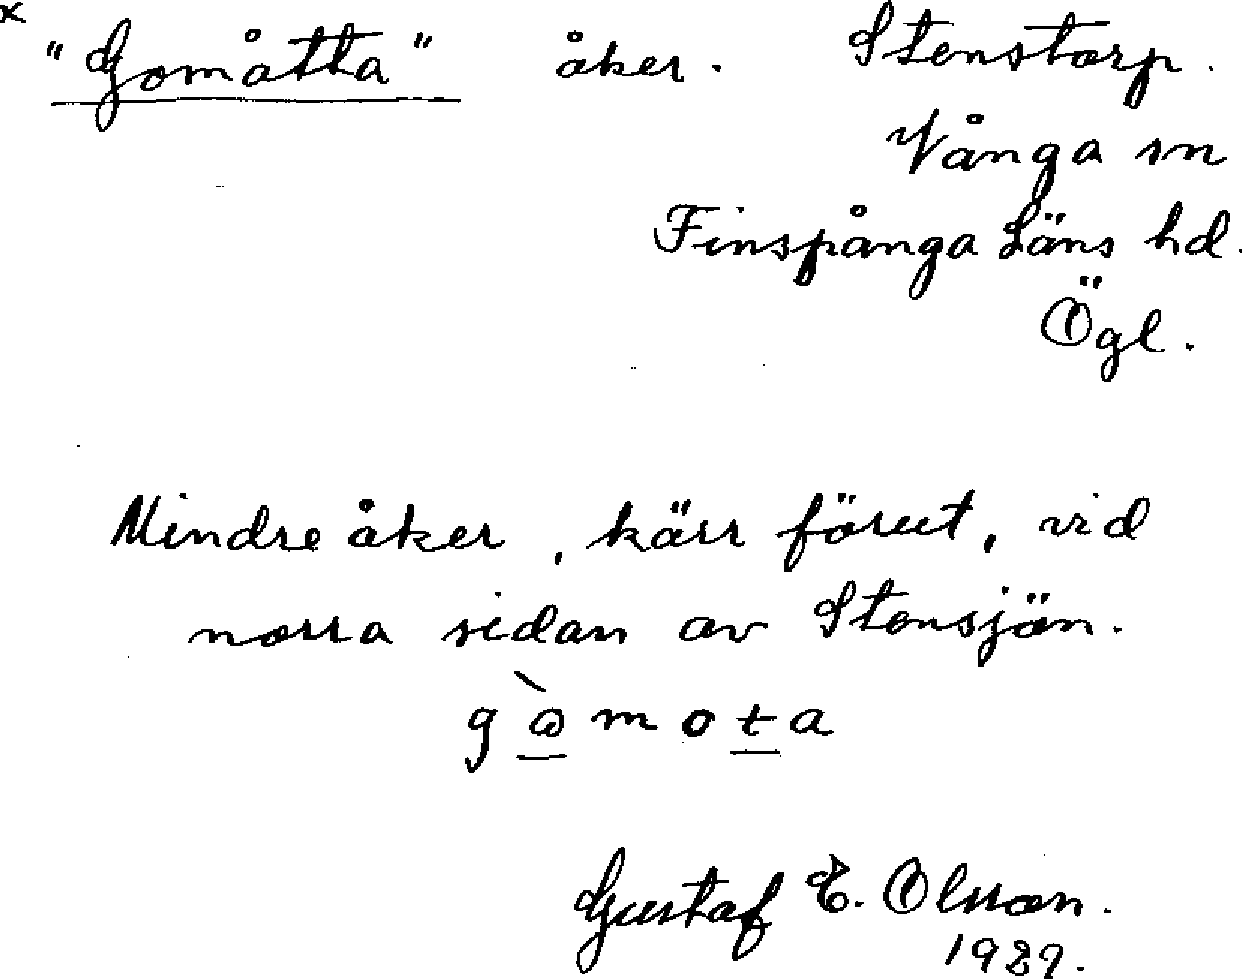 x "Gomåtta" åker. Stenstorp.
Vånga sn
Finspånga Läns hd.
Ögl.
Mindre åker, kärr förut, vid
norra sidan av Stensjön.
Gustaf E. Olsson.